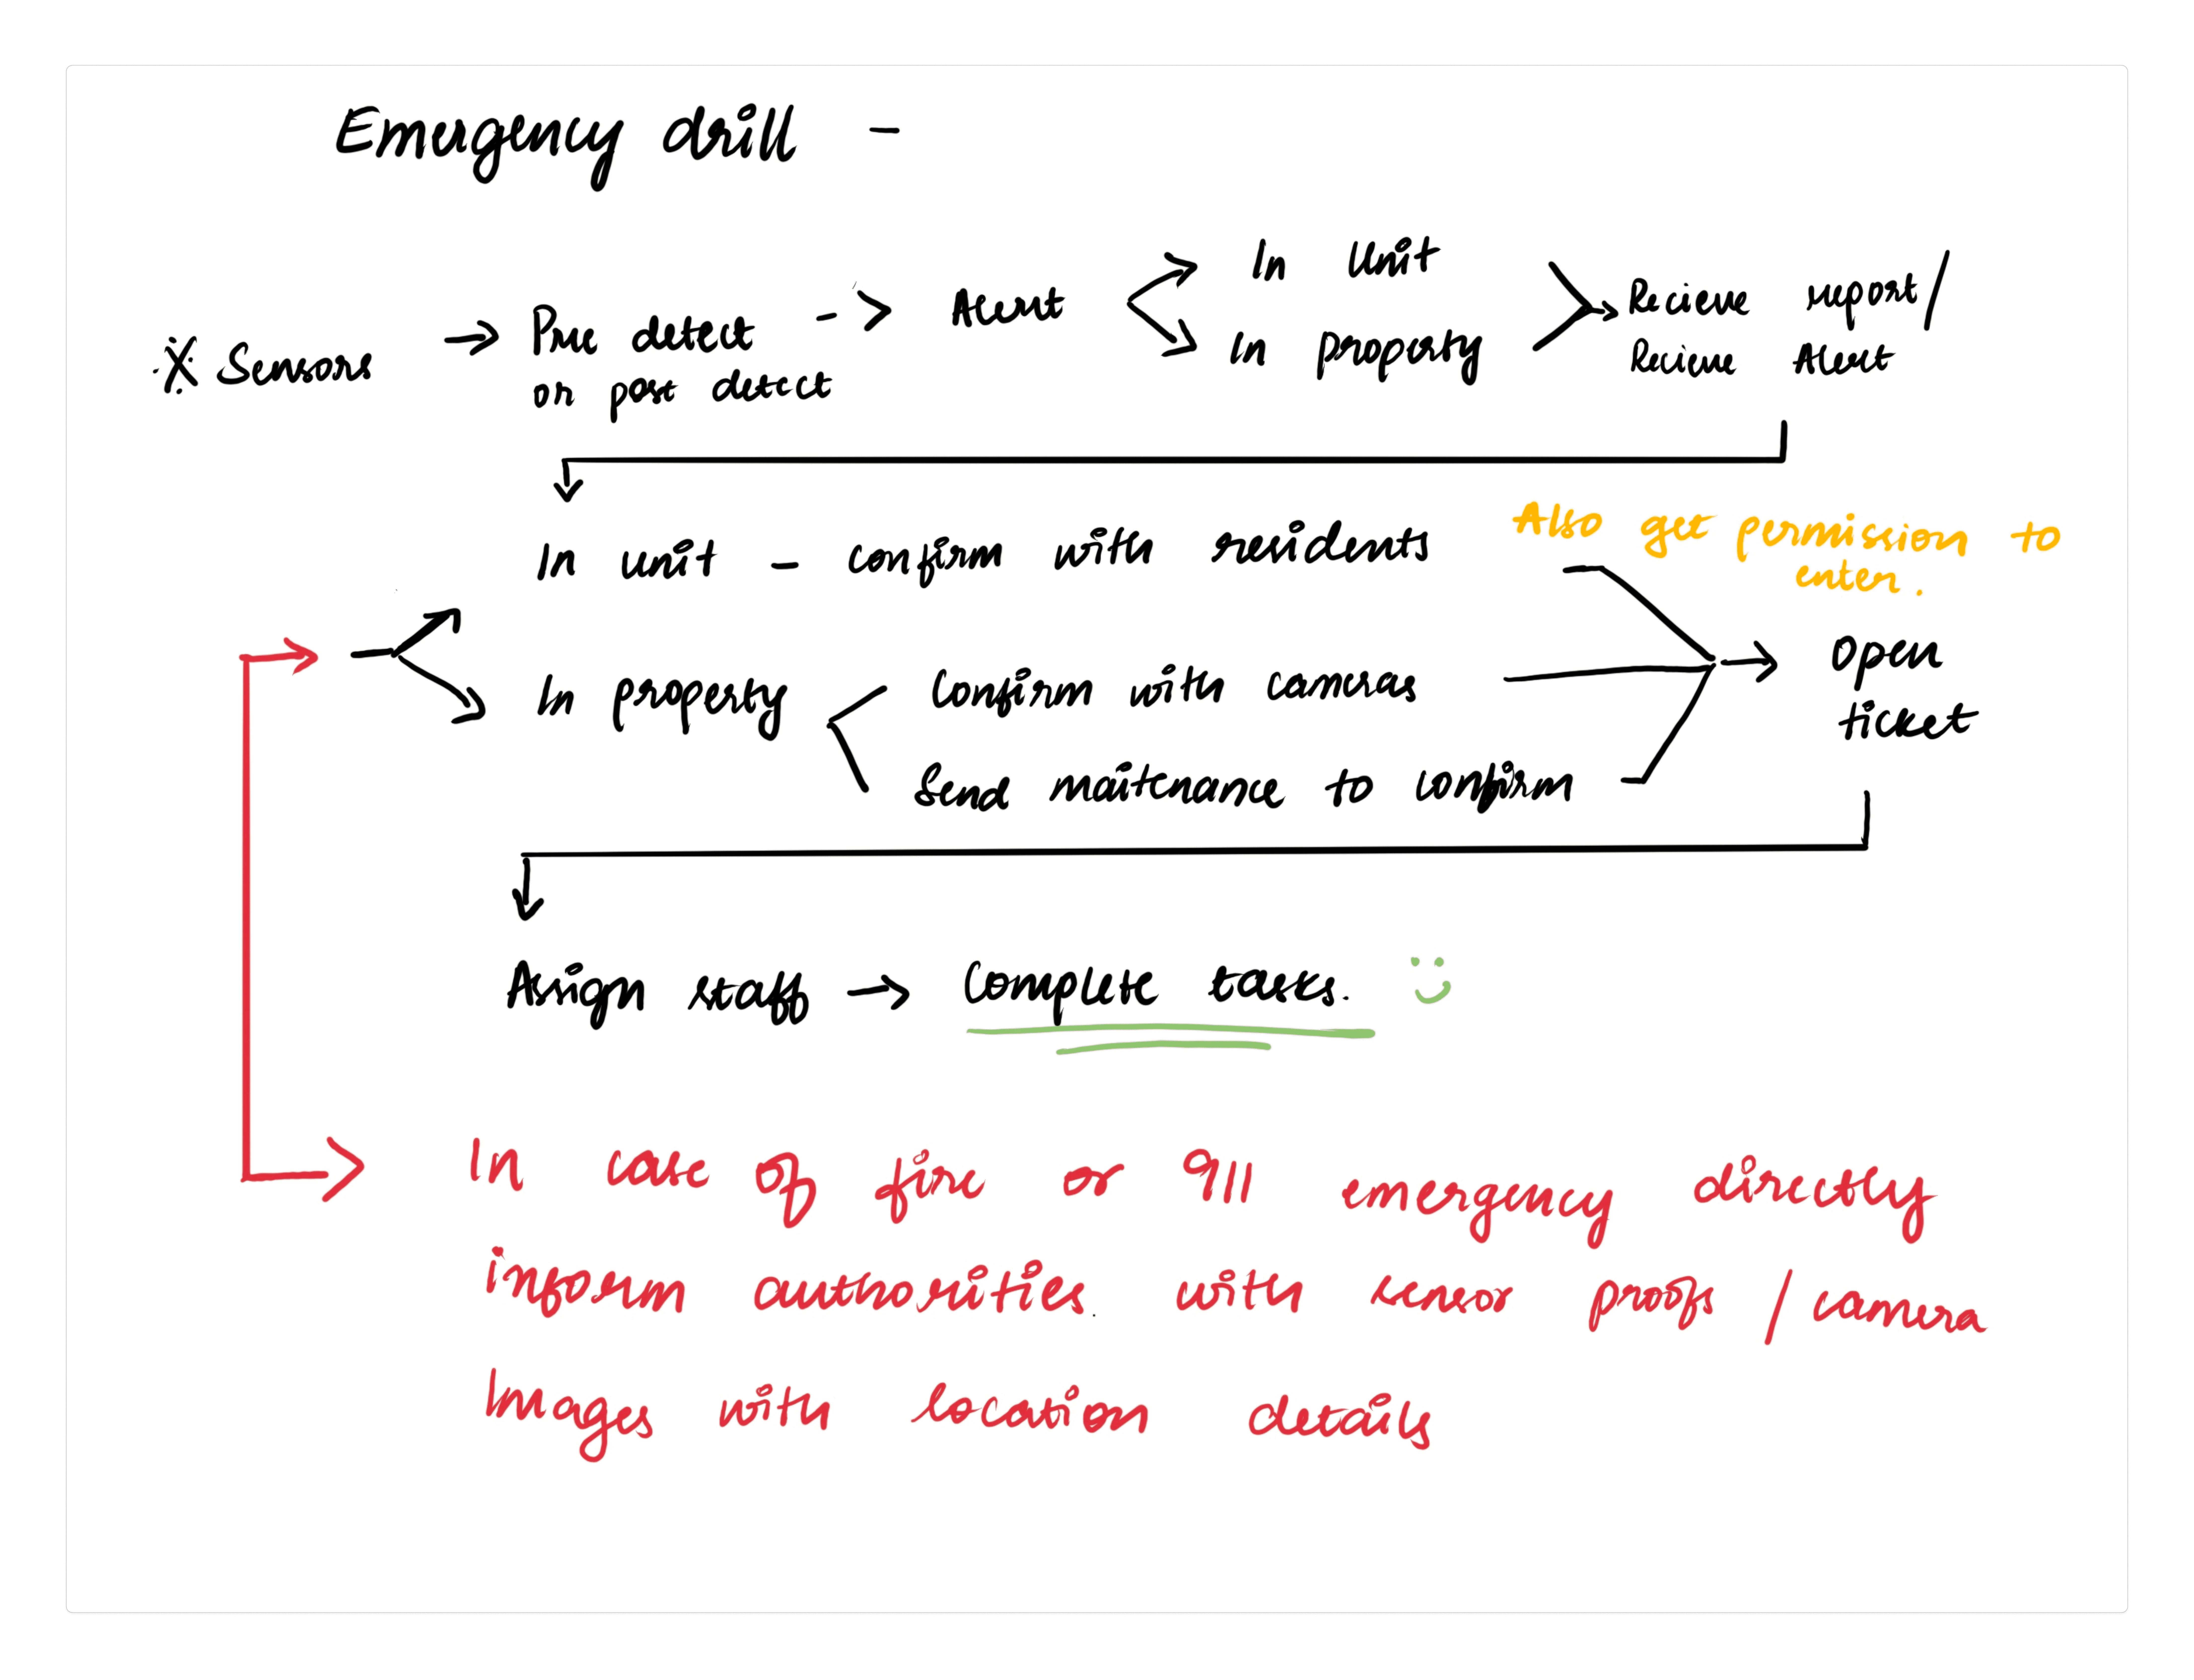 Emergency drill -
In Unit
In property
※ Sensors → Pre detect -> Alert
or post detect
Recieve report/
Recieve Alert
In unit - confirm with residents
Also get permission to
enter.
In property
Confirm with cameras
Send maitenance to confirm
Open
ticket
Assign staff → Complete tasks.
In case of fire or 911 emergency directly
inform authorities with sensor proofs / camera
Images with location details